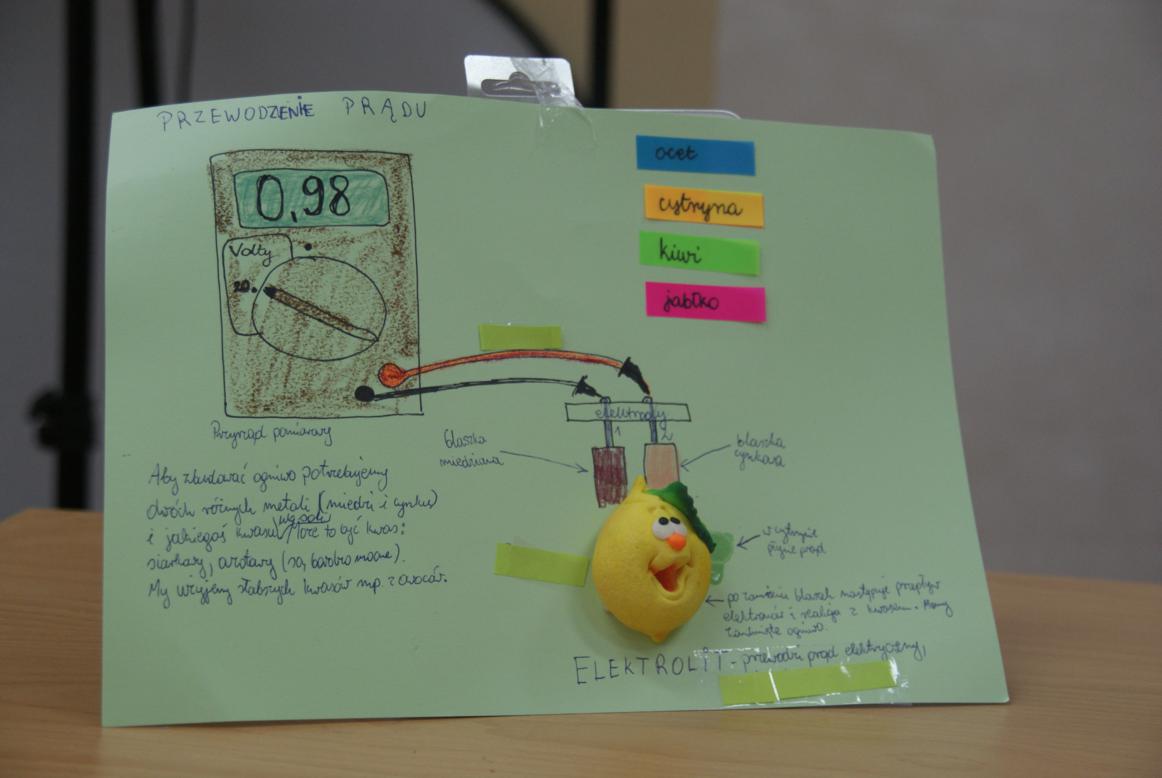 PRZEWODZENIE PRĄDU
0,98
Volty
20.
Przyrząd pomiarowy
ocet
cytryna
kiwi
jabłko
elektrody
1 2
blaszka
miedziana
blaszka
cynkowa
Aby zbudować ogniwo potrzebujemy
dwóch różnych metali (miedzi i cynku)
i jakiegoś kwasu. Może to być kwas:
siarkowy, azotowy (są bardzo mocne).
My użyjemy słabszych kwasów np. z owoców.
w cytrynie
płynie prąd
po zamknięciu blaszek następuje przepływ
elektronów i reakcja z kwasem. Mamy
zamknięte ogniwo.
ELEKTROLIT - przewodzi prąd elektryczny,